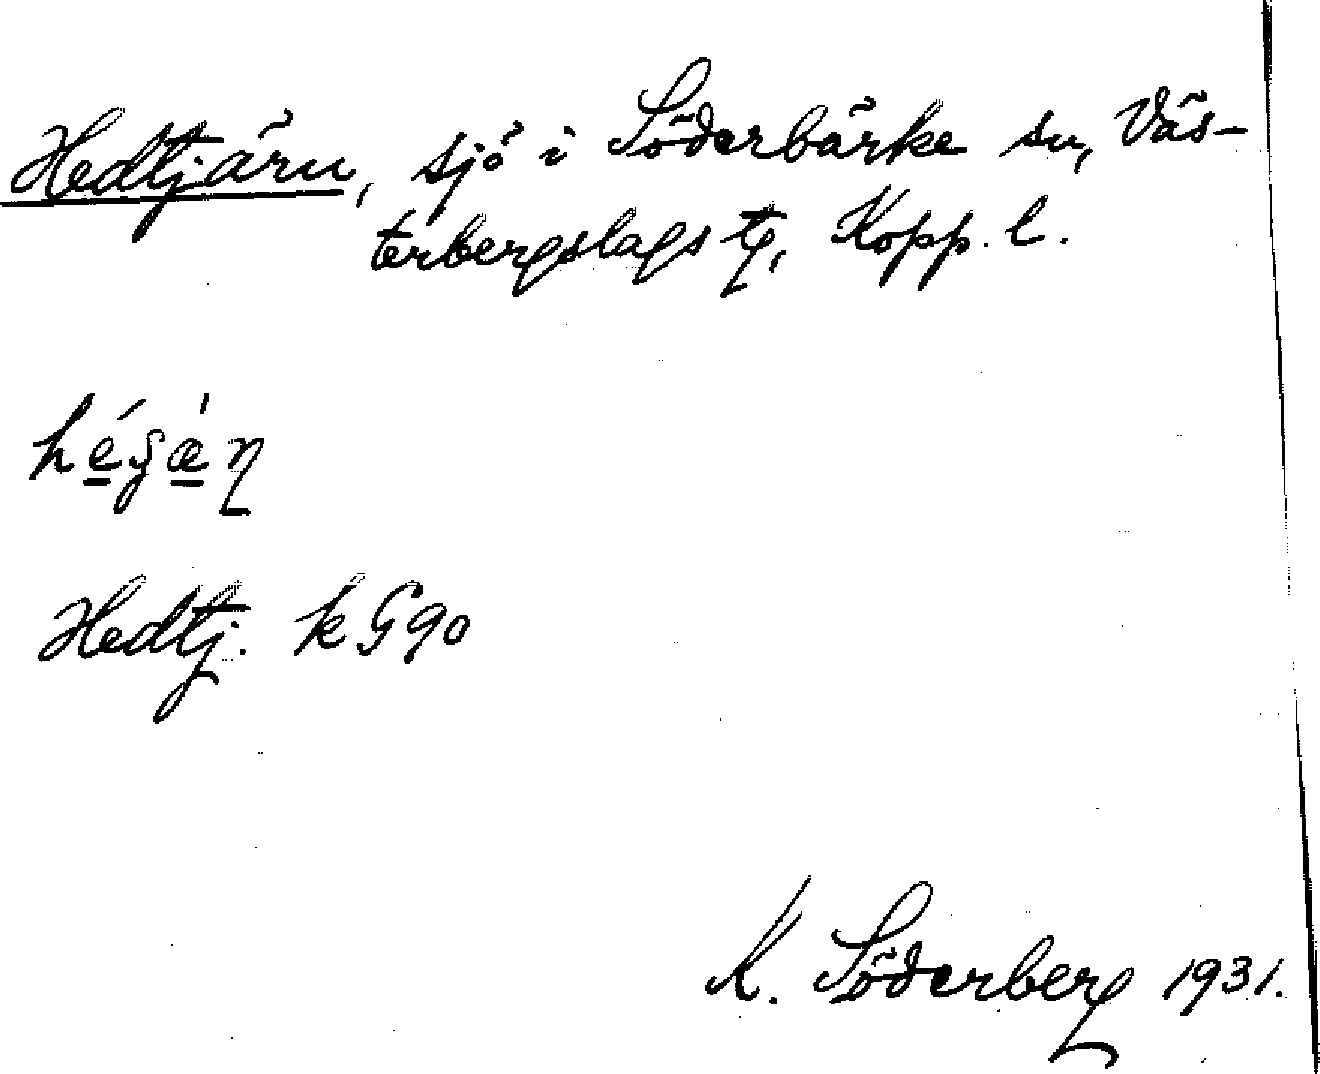 Hedtjärn, sjö i Söderbärke sn, Väs-
terbergslags tg, Kopp. l.
Hedtj. k G 90
K. Söderberg 1931.